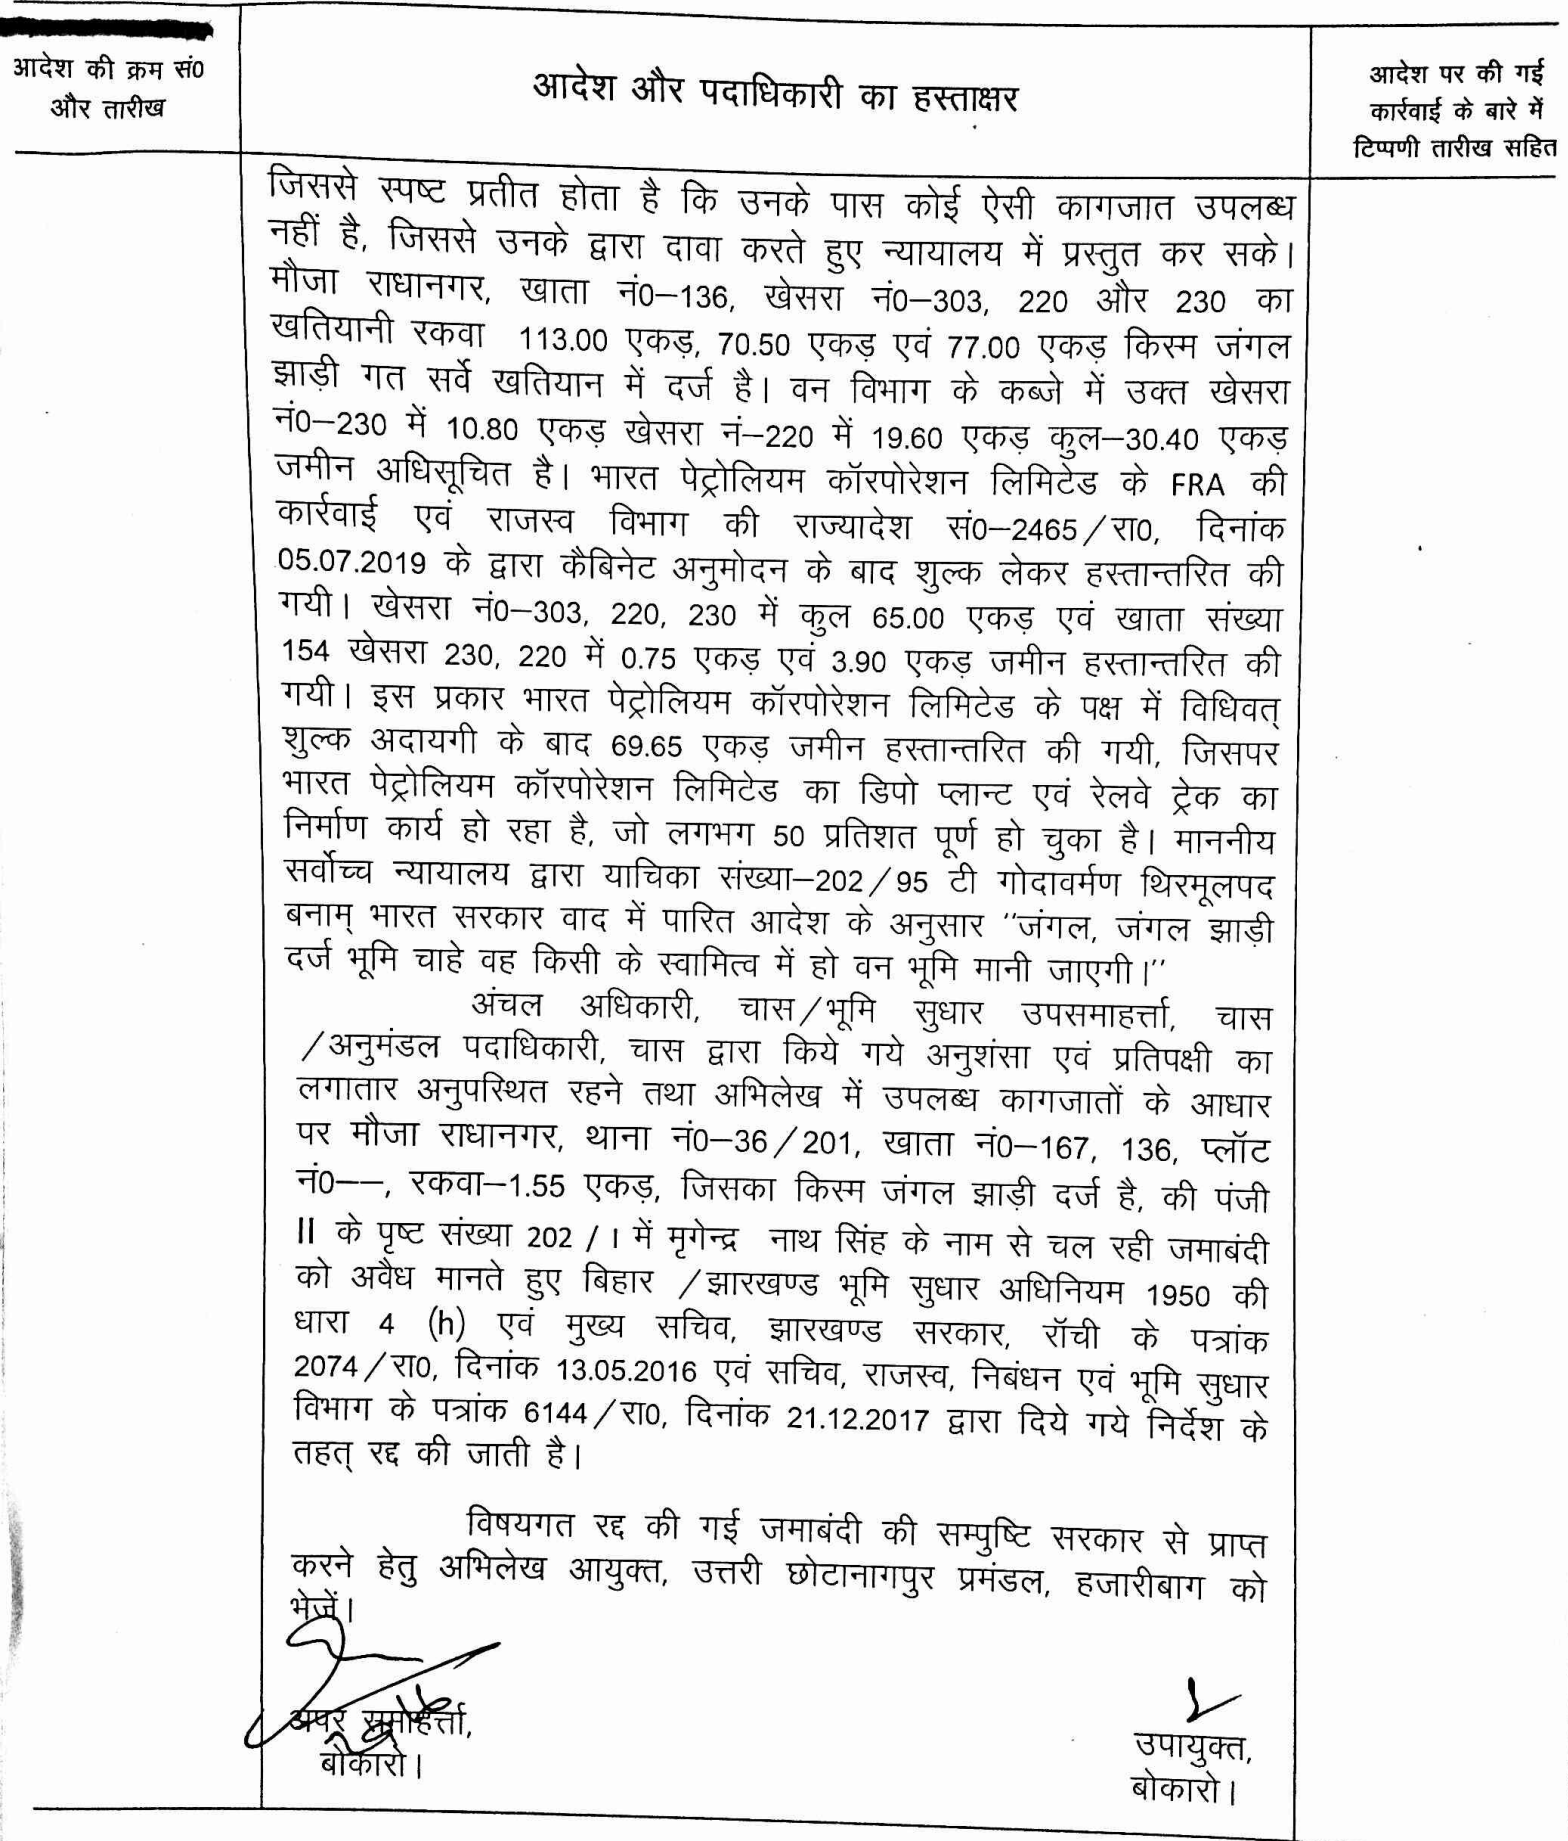 आदेश की क्रम सं0
और तारीख
आदेश और पदाधिकारी का हस्ताक्षर
आदेश पर की गई
कार्रवाई के बारे में
टिप्पणी तारीख सहित
जिससे स्पष्ट प्रतीत होता है कि उनके पास कोई ऐसी कागजात उपलब्ध
नहीं है, जिससे उनके द्वारा दावा करते हुए न्यायालय में प्रस्तुत कर सके।
मौजा राधानगर, खाता नं0–136, खेसरा नं0–303, 220 और 230 का
खतियानी रकवा 113.00 एकड़, 70.50 एकड़ एवं 77.00 एकड़ किस्म जंगल
झाड़ी गत सर्वे खतियान में दर्ज है। वन विभाग के कब्जे में उक्त खेसरा
नं0–230 में 10.80 एकड़ खेसरा नं–220 में 19.60 एकड़ कुल–30.40 एकड़
जमीन अधिसूचित है। भारत पेट्रोलियम कॉरपोरेशन लिमिटेड के FRA की
कार्रवाई एवं राजस्व विभाग की राज्यादेश सं0–2465/रा0, दिनांक
05.07.2019 के द्वारा कैबिनेट अनुमोदन के बाद शुल्क लेकर हस्तान्तरित की
गयी। खेसरा नं0–303, 220, 230 में कुल 65.00 एकड़ एवं खाता संख्या
154 खेसरा 230, 220 में 0.75 एकड़ एवं 3.90 एकड़ जमीन हस्तान्तरित की
गयी। इस प्रकार भारत पेट्रोलियम कॉरपोरेशन लिमिटेड के पक्ष में विधिवत्
शुल्क अदायगी के बाद 69.65 एकड़ जमीन हस्तान्तरित की गयी, जिसपर
भारत पेट्रोलियम कॉरपोरेशन लिमिटेड का डिपो प्लान्ट एवं रेलवे ट्रेक का
निर्माण कार्य हो रहा है, जो लगभग 50 प्रतिशत पूर्ण हो चुका है। माननीय
सर्वोच्च न्यायालय द्वारा याचिका संख्या–202/95 टी गोदावर्मण थिरमूलपद
बनाम् भारत सरकार वाद में पारित आदेश के अनुसार "जंगल, जंगल झाड़ी
दर्ज भूमि चाहे वह किसी के स्वामित्व में हो वन भूमि मानी जाएगी।"
अंचल अधिकारी, चास/भूमि सुधार उपसमाहर्त्ता, चास
/अनुमंडल पदाधिकारी, चास द्वारा किये गये अनुशंसा एवं प्रतिपक्षी का
लगातार अनुपस्थित रहने तथा अभिलेख में उपलब्ध कागजातों के आधार
पर मौजा राधानगर, थाना नं0–36/201, खाता नं0–167, 136, प्लॉट
नं0––, रकवा–1.55 एकड़, जिसका किस्म जंगल झाड़ी दर्ज है, की पंजी
II के पृष्ट संख्या 202 / I में मृगेन्द्र नाथ सिंह के नाम से चल रही जमाबंदी
को अवैध मानते हुए बिहार /झारखण्ड भूमि सुधार अधिनियम 1950 की
धारा 4 (h) एवं मुख्य सचिव, झारखण्ड सरकार, रॉची के पत्रांक
2074/रा0, दिनांक 13.05.2016 एवं सचिव, राजस्व, निबंधन एवं भूमि सुधार
विभाग के पत्रांक 6144/रा0, दिनांक 21.12.2017 द्वारा दिये गये निर्देश के
तहत् रद्द की जाती है।
विषयगत रद्द की गई जमाबंदी की सम्पुष्टि सरकार से प्राप्त
करने हेतु अभिलेख आयुक्त, उत्तरी छोटानागपुर प्रमंडल, हजारीबाग को
भेजें।
अपर समाहर्त्ता,
बोकारो।
उपायुक्त,
बोकारो।